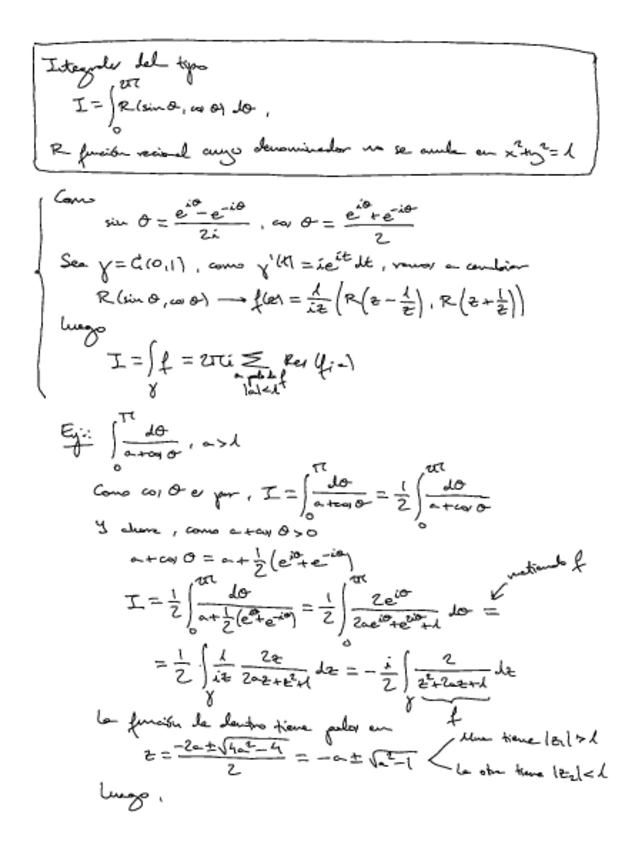 Integrales del tipo
I = ∫₀^{2π} R(sin θ, cos θ) dθ,
R función racional cuyo denominador no se anula en x²+y²=1
Como
sin θ = (e^{iθ} - e^{-iθ})/2i, cos θ = (e^{iθ} + e^{-iθ})/2
Sea γ = C(0,1), como γ'(t) = ie^{it} dt, vamos a cambiar
R(sin θ, cos θ) → f(z) = 1/iz (R(z - 1/z), R(z + 1/z))
Luego
I = ∫_γ f = 2πi Σ_{a polo de f, |a|<1} Res(f; a)
Ej: ∫₀^π dθ/(a+cos θ), a>1
Como cos θ es par, I = ∫₀^π dθ/(a+cos θ) = 1/2 ∫₀^{2π} dθ/(a+cos θ)
Y ahora, como a+cos θ>0
a+cos θ = a + 1/2 (e^{iθ} + e^{-iθ})
metiendo f
I = 1/2 ∫₀^{2π} dθ/(a + 1/2(e^{iθ} + e^{-iθ})) = 1/2 ∫₀^{2π} 2e^{iθ}/(2ae^{iθ} + e^{2iθ} + 1) dθ =
= 1/2 ∫_γ 1/iz 2z/(2az+z²+1) dz = -i/2 ∫_γ 2/(z²+2az+1) dz
f
La función de dentro tiene polos en
z = (-2a ± √(4a²-4))/2 = -a ± √(a²-1)
Uno tiene |z₁|>1
La otra tiene |z₂|<1
Luego,